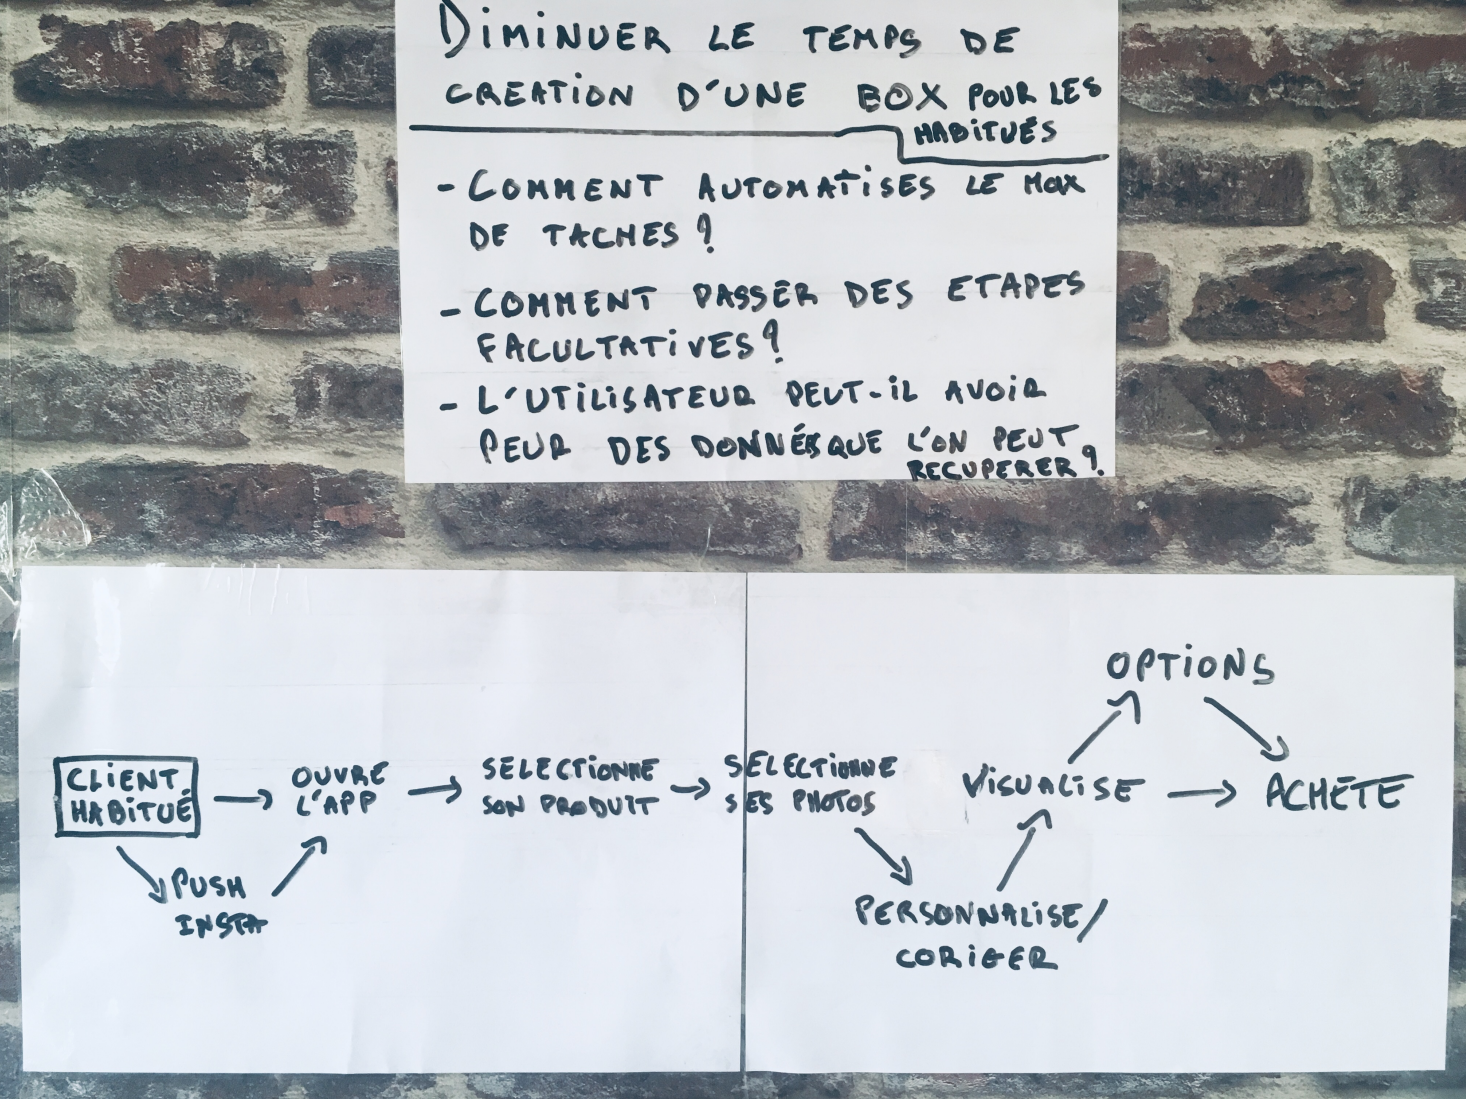 DIMINUER LE TEMPS DE
CREATION D'UNE BOX POUR LES
HABITUÉS
- COMMENT AUTOMATISES LE MAX
DE TACHES ?
- COMMENT PASSER DES ETAPES
FACULTATIVES ?
- L'UTILISATEUR PEUT-IL AVOIR
PEUR DES DONNÉES QUE L'ON PEUT
RECUPERER ?
CLIENT
HABITUÉ
PUSH
INSTA
OUVRE
L'APP
SELECTIONNE
SON PRODUIT
SELECTIONNE
SES PHOTOS
PERSONNALISE/
CORIGER
VISUALISE
OPTIONS
ACHÈTE